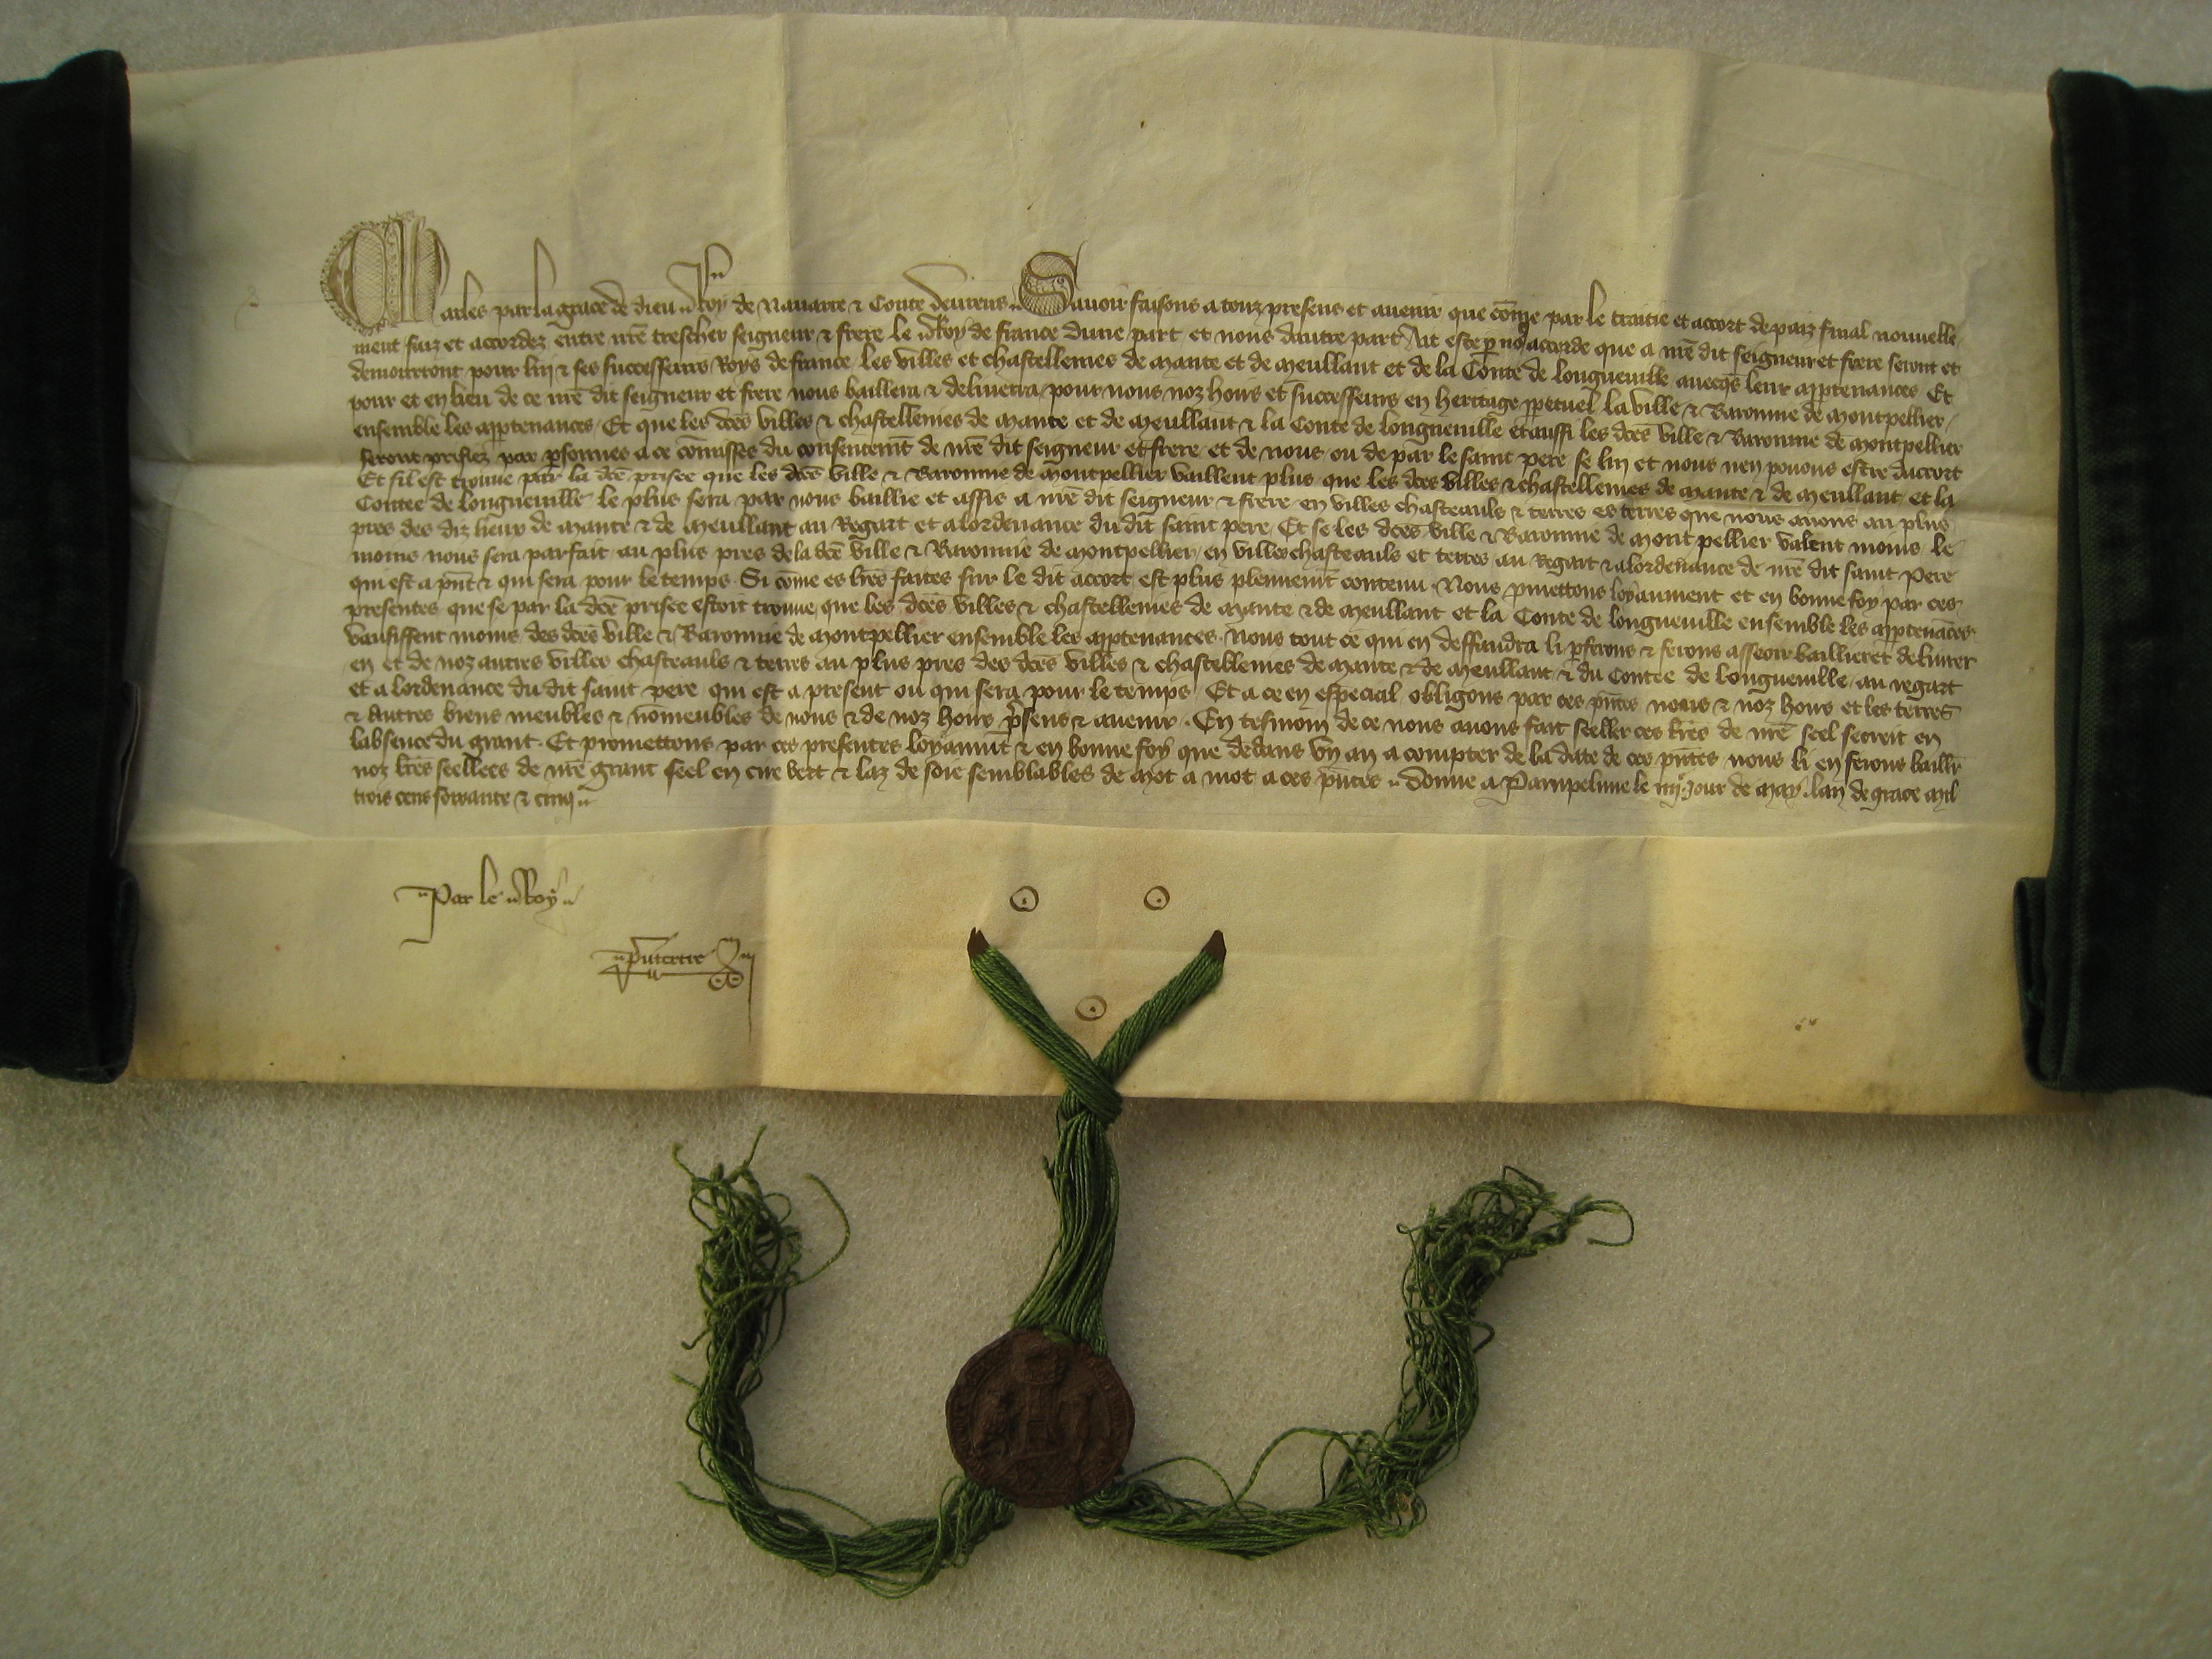 Charles par la grace de dieu Roy de Nauarre & Conte deureus Sauoir faisons a touz presens et auenir que cōme par le traitie et accort de paiz final nouuelle
ment faiz et accordez entre nr̄e trescher seigneur & frere le Roy de france dune part et nous dautre part Ait este p̲ no9 accorde que a nr̄e dit seigneur et frere seront et
demourront pour luy & ses successeurs Roys de france les villes et chastellenies de Mante et de Meullant et de la Conte de longueuille auecq̄s leur app̲tenances Et
pour et en lieu de ce nr̄e dit seigneur et frere nous baillera & deliuerra pour nous noz hoirs et successeurs en heritage pp̲etuel la ville & Baronnie de Montpellier
ensemble les app̲tenances Et que les dc̄es villes & chastellenies de Mante et de Meullant & la Conte de longueuille et aussi les dc̄es ville & Baronnie de Montpellier
seront prisiez par p̲sonnes a ce cōmisses du consentem̄t de nr̄e dit seigneur et frere et de nous ou de par le saint pere se luy et nous nen pouons estre daccort
Et sil est trouue par la dc̄e prisee que les dc̄es ville & Baronnie de Montpellier vaillent plus que les dc̄es villes & chastellenies de Mante & de Meullant et la
Contee de longueuille le plus sera par nous baillie et assis a nr̄e dit seigneur & frere en villes chasteauls & terres es terres que nous auons au plus
pres des diz lieux de Mante & de Meullant au Regart et a lordenance du dit saint pere Et se les dc̄es ville & Baronnie de Mont pellier valent moins le
moins nous sera parfait au plus pres de la dc̄e ville & Baronnie de Montpellier en villes chasteauls et terres au Regart & a lordenance de nr̄e dit saint Pere
qui est a p̄nt & qui sera pour le temps Si cōme es lr̄es faites sur le dit accort est plus plennem̄t contenu Nous p̲mettons loyaument et en bonne foy par ces
presentes que se par la dc̄e prisee estoit trouue que les dc̄es villes & chastellenies de Mante & de Meullant et la Conte de longueuille ensemble les app̲tenāces
vausissent moins des dc̄es ville & Baronnie de Montpellier ensemble les app̲tenances Nous tout ce qui en deffaudra li p̲ferons & ferons asseoir baillier et deliurer
en et de noz autres villes chasteauls & terres au plus pres des dc̄es villes & chastellenies de Mante & de Meullant & du Contee de longueuille au regart
et a lordenance du dit saint pere qui est a present ou qui sera pour le temps Et a ce en especial obligons par ces p̄ntes nous & noz hoirs et les terres
& autres biens meubles & nōmeubles de nous & de noz hoirs p̄sens & auenir En tesmoin de ce nous auons fait seeller ces lr̄es de nr̄e seel secreit en
labsence du grant Et promettons par ces presentes loyaum̄t & en bonne foy que dedans vn an a compter de la date de ces p̄ntes nous li en ferons baillr̄
noz lr̄es seellees de nr̄e grant seel en cire vert & laz de soie semblables de mot a mot a ces p̄ntes Donne a Pampelune le iiij.e jour de May lan de grace mil
trois cens soixante & cinq
Par le Roy